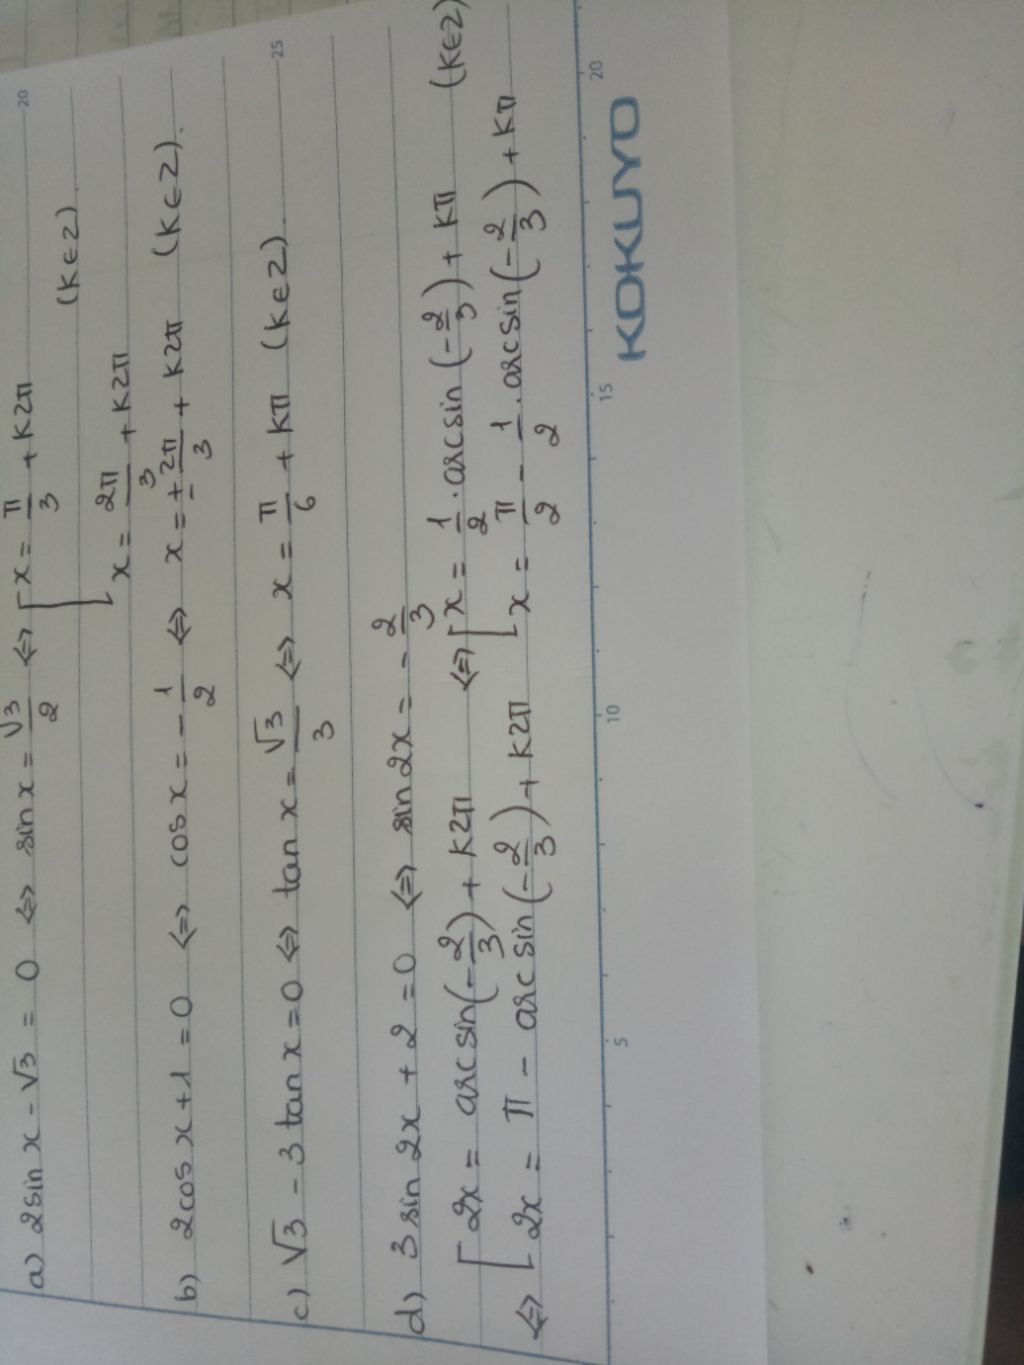 20
a) 2sin x - √3 = 0 <=> sin x = √3/2 <=> [ x = π/3 + k2π
(k∈Z).
x = 2π/3 + k2π
b) 2cos x + 1 = 0 <=> cos x = -1/2 <=> x = ±2π/3 + k2π (k∈Z).
25
c) √3 - 3tan x = 0 <=> tan x = √3/3 <=> x = π/6 + kπ (k∈Z).
d) 3 sin 2x + 2 = 0 <=> sin 2x = -2/3
<=> [ 2x = arcsin(-2/3) + k2π <=> [ x = 1/2 . arcsin(-2/3) + kπ (k∈Z)
2x = π - arcsin(-2/3) + k2π x = π/2 - 1/2 . arcsin(-2/3) + kπ
5 10 15 20
KOKUYO